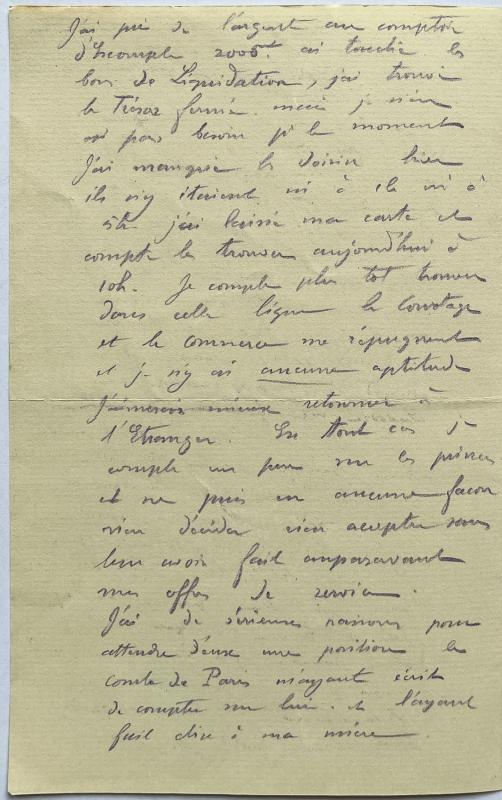 J'ai pris de l'argent au comptoir
d'Escompte 2000f. ai touché les
bons de Liquidation, j'ai trouvé
le Trésor fermé mais je n'en
ai pas besoin pr le moment
J'ai manqué les Voisin hier
ils n'y étaient ni à 2h ni à
5h j'ai laissé ma carte et
compte les trouver aujourd'hui à
10h. Je compte plus tot trouver
dans cette ligne le Courtage
et le commerce me répugnent
et je n'y ai aucune aptitude
J'aimerais mieux retourner à
l'Etranger. En tout cas je
compte un peu sur les princes
et ne puis en aucune façon
rien décider rien accepter sans
leur avoir fait auparavant
mes offres de service.
J'ai de sérieuses raisons pour
attendre d'eux une position le
comte de Paris m'ayant écrit
de compter sur lui. et l'ayant
fait dire à ma mère.